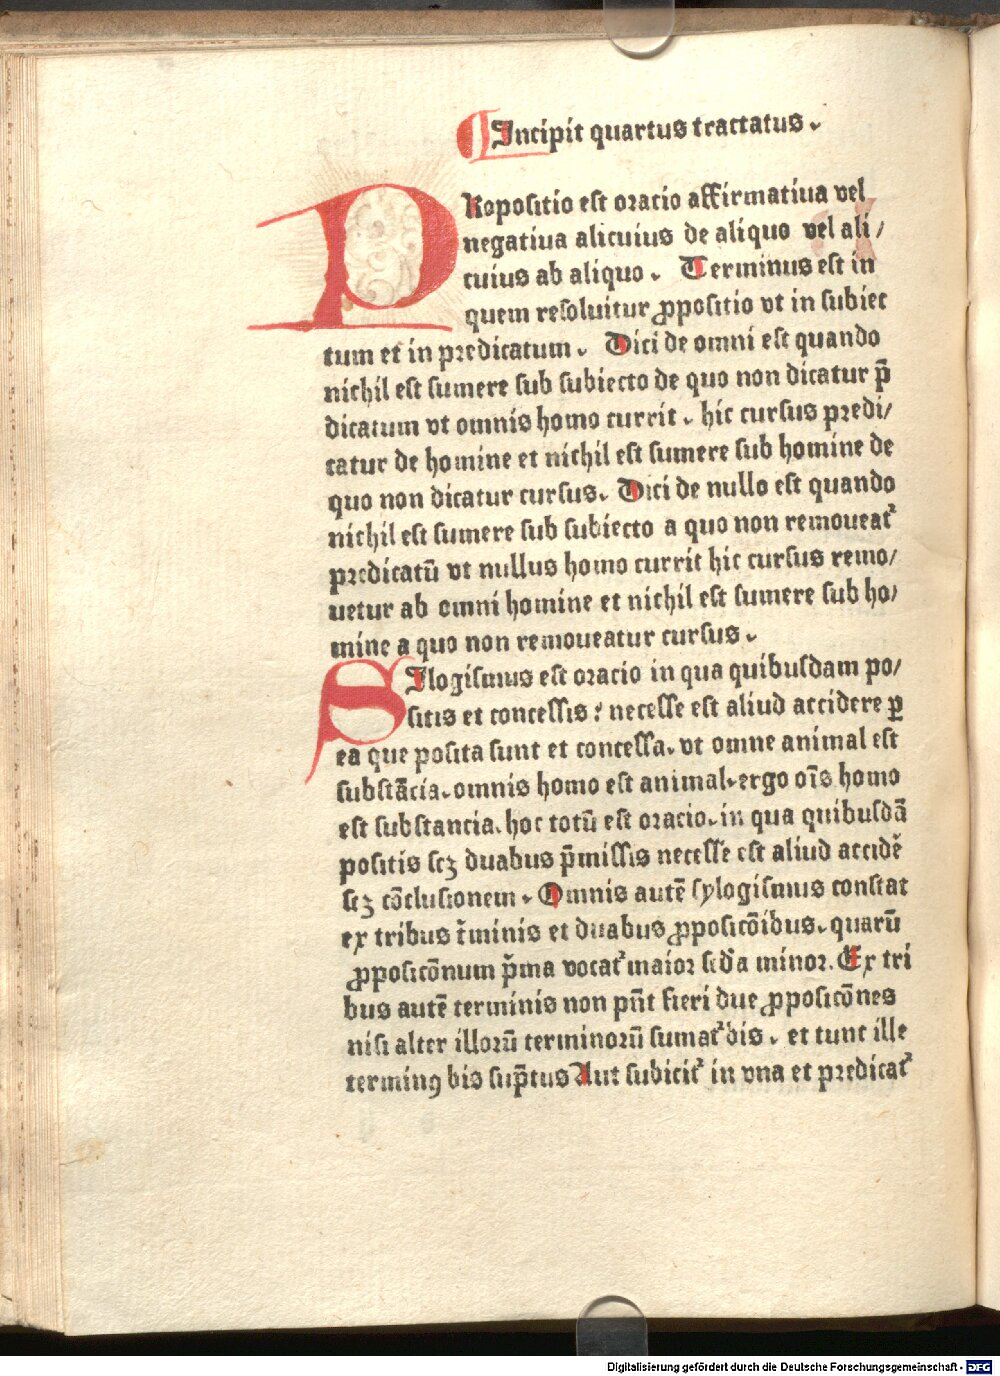 Incipit quartus tractatus.
PRopositio est oracio affirmatiua vel
negatiua alicuius de aliquo vel ali/
cuius ab aliquo. Terminus est in
quem resoluitur ꝓpositio vt in subiec
tum et in predicatum. Dici de omni est quando
nichil est sumere sub subiecto de quo non dicatur p̄
dicatum vt omnis homo currit. hic cursus predi/
catur de homine et nichil est sumere sub homine de
quo non dicatur cursus. Dici de nullo est quando
nichil est sumere sub subiecto a quo non remoueat᷑
predicatū vt nullus homo currit hic cursus remo/
uetur ab omni homine et nichil est sumere sub ho/
mine a quo non remoueatur cursus.
SIlogismus est oracio in qua quibusdam po/
sitis et concessis: necesse est aliud accidere ꝑ
ea que posita sunt et concessa. vt omne animal est
substācia. omnis homo est animal. ergo oīs homo
est substancia. hoc totū est oracio. in qua quibusdā
positis scꝫ duabus p̄missis necesse est aliud accidē
scꝫ cōclusionem. Omnis autē sylogismus constat
ex tribus t̄minis et duabus ꝓposicōibus. quarū
ꝓposicōnum p̄ma vocat᷑ maior scd̄a minor. Ex tri
bus autē terminis non pn̄t fieri due ꝓposicōnes
nisi alter illorū terminorū sumat᷑ bis. et tunc ille
terminꝰ bis sup̄tus Aut subicit᷑ in vna et predicat᷑
Digitalisierung gefördert durch die Deutsche Forschungsgemeinschaft - DFG